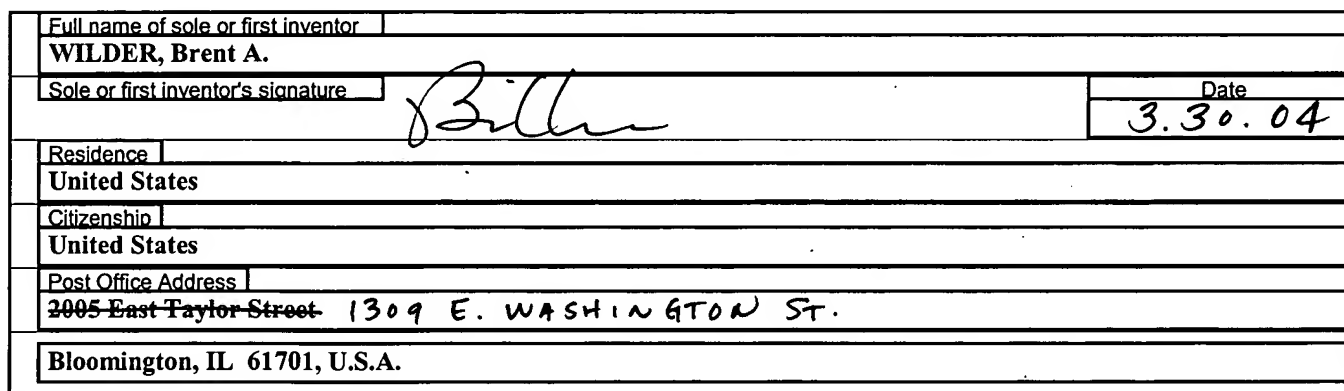 Full name of sole or first inventor
WILDER, Brent A.
Sole or first inventor's signature
Date
3.30.04
Residence
United States
Citizenship
United States
Post Office Address
2005 East Taylor Street 1309 E. WASHINGTON ST.
Bloomington, IL 61701, U.S.A.